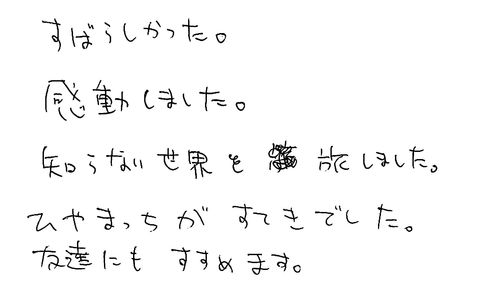 すばらしかった。
感動しました。
知らない世界を旅しました。
ひやまっちがすてきでした。
友達にもすすめます。